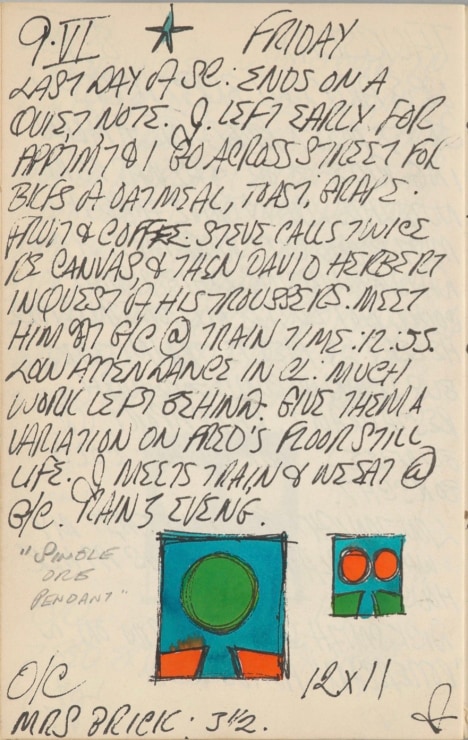 9·VI FRIDAY
LAST DAY OF SC: ENDS ON A
QUIET NOTE. J. LEFT EARLY FOR
APPTMT & I GO ACROSS STREET FOR
BKFS OF OATMEAL, TOAST, GRAPE-
FRUIT & COFFEE. STEVE CALLS TWICE
RE CANVAS, & THEN DAVID HERBERT
IN QUEST OF HIS TROUSERS. MEET
HIM AT G/C @ TRAIN TIME: 12:55.
LOW ATTENDANCE IN CL: MUCH
WORK LEFT BEHIND. GIVE THEM A
VARIATION ON FRED'S FLOOR STILL
LIFE. J MEETS TRAIN & WE EAT @
G/C. RAIN 3 EVENG.
"SINGLE
ORB
PENDANT"
O/C 12 X 11
MRS BRICK · 3 1/2.